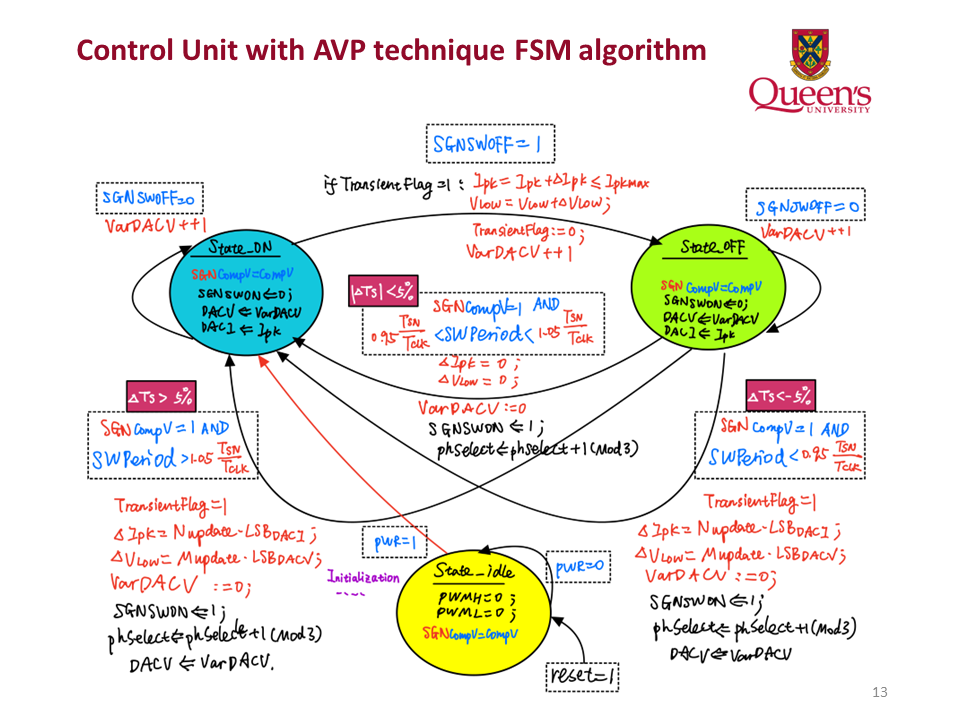 Control Unit with AVP technique FSM algorithm
Queen's
UNIVERSITY
SGNSWOFF=1
if TransientFlag=1: Ipk=Ipk+ΔIpk≤Ipkmax
Vlow=Vlow+ΔVlow;
TransientFlag:=0;
VarDACV++1
SGNSWOFF=0
VarDACV++1
State_ON
SGNCompV=CompV
SGNSWON⇐0;
DACV⇐VarDACV
DACI⇐Ipk
SGNSWOFF=0
VarDACV++1
State_OFF
SGN CompV=CompV
SGNSWON⇐0;
DACV⇐VarDACV
DACI⇐Ipk
|ΔTs|<5%
SGNCompV=1 AND
0.95 TSN/TCLK <SWPeriod< 1.05 TSN/TCLK
ΔIpk=0;
ΔVlow=0;
VarDACV:=0
SGNSWON⇐1;
phSelect⇐phSelect+1(Mod3)
ΔTs>5%
SGNCompV=1 AND
SWPeriod>1.05 TSN/TCLK
TransientFlag=1
ΔIpk=Nupdate·LSBDACI;
ΔVlow=Mupdate·LSBDACV;
VarDACV:=0;
SGNSWON⇐1;
phSelect⇐phSelect+1(Mod3)
DACV⇐VarDACV.
ΔTs<-5%
SGN CompV=1 AND
SWPeriod<0.95 TSN/TCLK
TransientFlag=1
ΔIpk=Nupdate·LSBDACI;
ΔVlow=Mupdate·LSBDACV;
VarDACV:=0;
SGNSWON⇐1;
phSelect⇐phSelect+1(Mod3)
DACV⇐VarDACV
PWR=1
Initialization
State_idle
PWMH=0;
PWML=0;
SGNCompV=CompV
PWR=0
reset=1
13